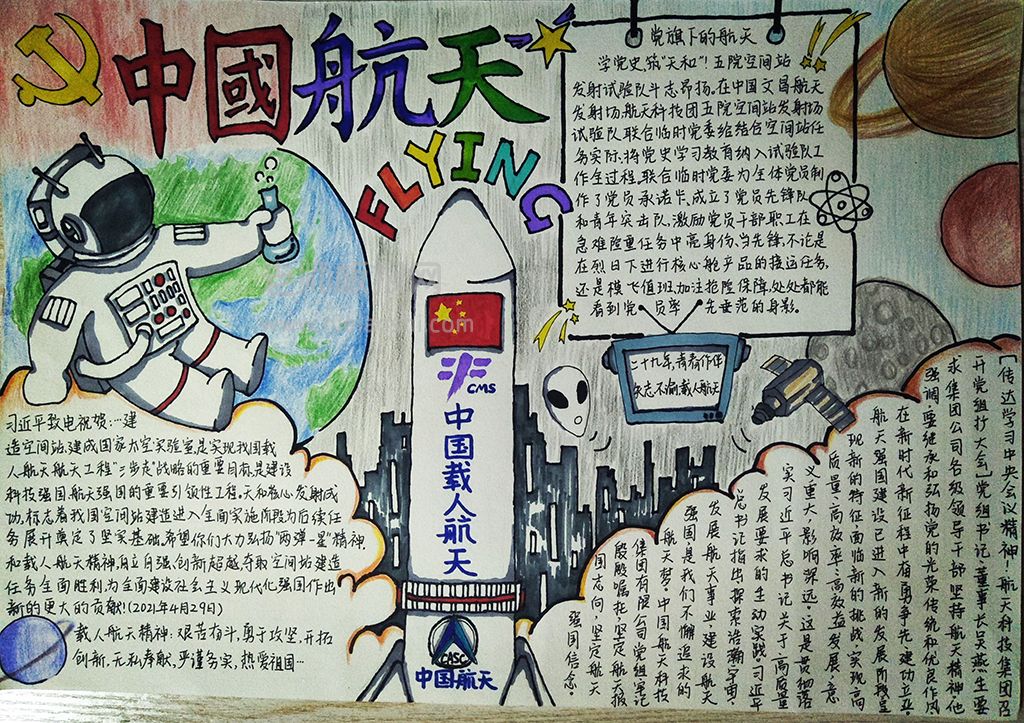 中國航天
FLYING
党旗下的航天
学党史筑"天和"！五院空间站
发射试验队斗志昂扬,在中国文昌航天
发射场,航天科技团五院空间站发射场
试验队联合临时党委给结合空间站任
务实际,将党史学习教育纳入试验队工
作全过程,联合临时党委为全体党员制
作了党员承诺卡,成立了党员先锋队
和青年突击队,激励党员干部职工在
急难险重任务中亮身份、当先锋,不论是
在烈日下进行核心舱产品的接运任务,
还是模飞值班,加注抢险保障,处处都能
看到党员率先垂范的身影。
二十九年,青春作伴
矢志不渝,载人航天
CMS
中国载人航天
CASC
中国航天
习近平致电祝贺:…建
造空间站,建成国家太空实验室,是实现我国载
人航天航天工程"三步走"战略的重要目标,是建设
科技强国,航天强国的重要引领性工程。天和核心发射成
功,标志着我国空间站建造进入全面实施阶段为后续任
务展开奠定了坚实基础。希望你们大力弘扬"两弹一星"精神
和载人航天精神,自立自强、创新超越,夺取空间站建造
任务全面胜利,为全面建设社会主义现代化强国作出
新的更大的贡献!(2021年4月29日)
载人航天精神:艰苦奋斗,勇于攻坚,开拓
创新,无私奉献,严谨务实,热爱祖国…
[传达学习中央会议精神]-航天科技集团召
开党组扩大会,党组书记、董事长吴燕生要
求集团公司各级领导干部坚持航天精神,他
强调,要继承和弘扬党的光荣传统和优良作风
在新时代新征程中奋勇争先建功立业
航天强国建设已进入新的发展阶段,呈
现新的特征,面临新的挑战,实现高
质量、高效率、高效益发展,意
义重大,影响深远。这是贯彻落
实习近平总书记关于高质量
发展要求的生动实践。习近平
总书记指出,探索浩瀚宇宙,
发展航天事业,建设航天
强国,是我们不懈追求的
航天梦。中国航天科技
集团有限公司党组牢记
殷殷嘱托,坚定航天报
国志向,坚定航天
强国信念。